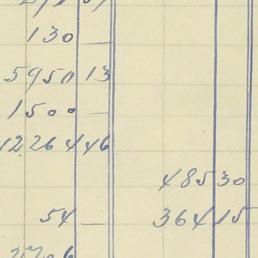 130 —
5950 13
1500 —
12264 46
485 30
54 — 364 15